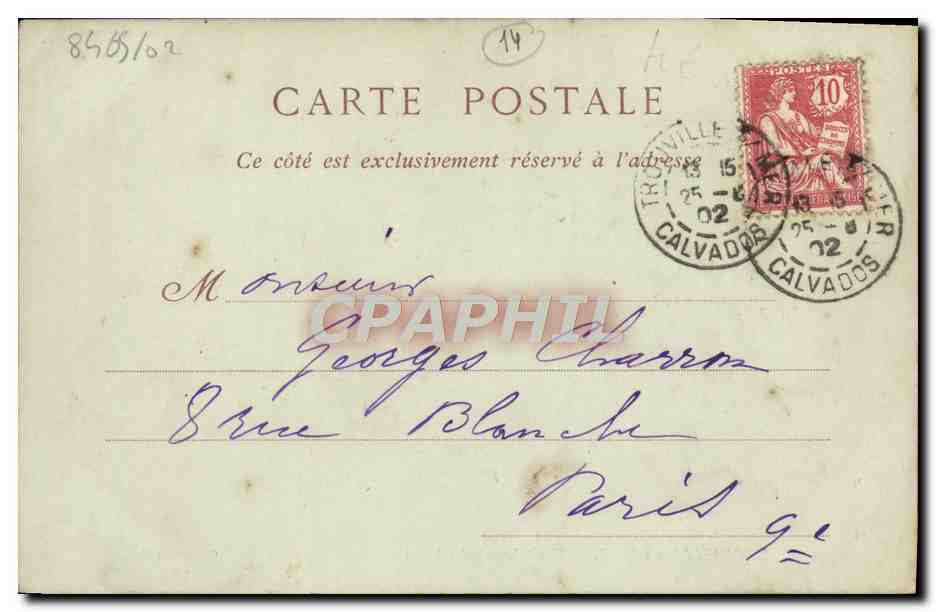 8465/02
14
CARTE POSTALE
Ce côté est exclusivement réservé à l'adresse
POSTES
10
TROUVILLE S/MER
13 15
25 - 8
02
CALVADOS
MER
13 15
25 - 8
02
CALVADOS
Monsieur
CPAPHIL
Georges Charron
8 rue Blanche
Paris 9e